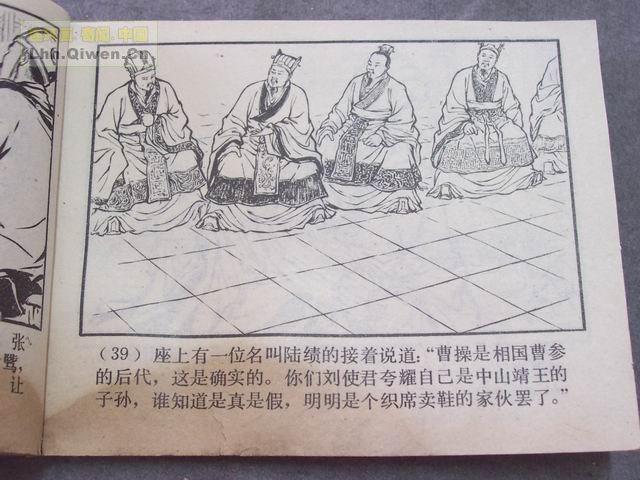 Lhh.Qiwen.Cn
张
骘,
让
(39) 座上有一位名叫陆绩的接着说道:“曹操是相国曹参
的后代，这是确实的。你们刘使君夸耀自己是中山靖王的
子孙，谁知道是真是假，明明是个织席卖鞋的家伙罢了。”